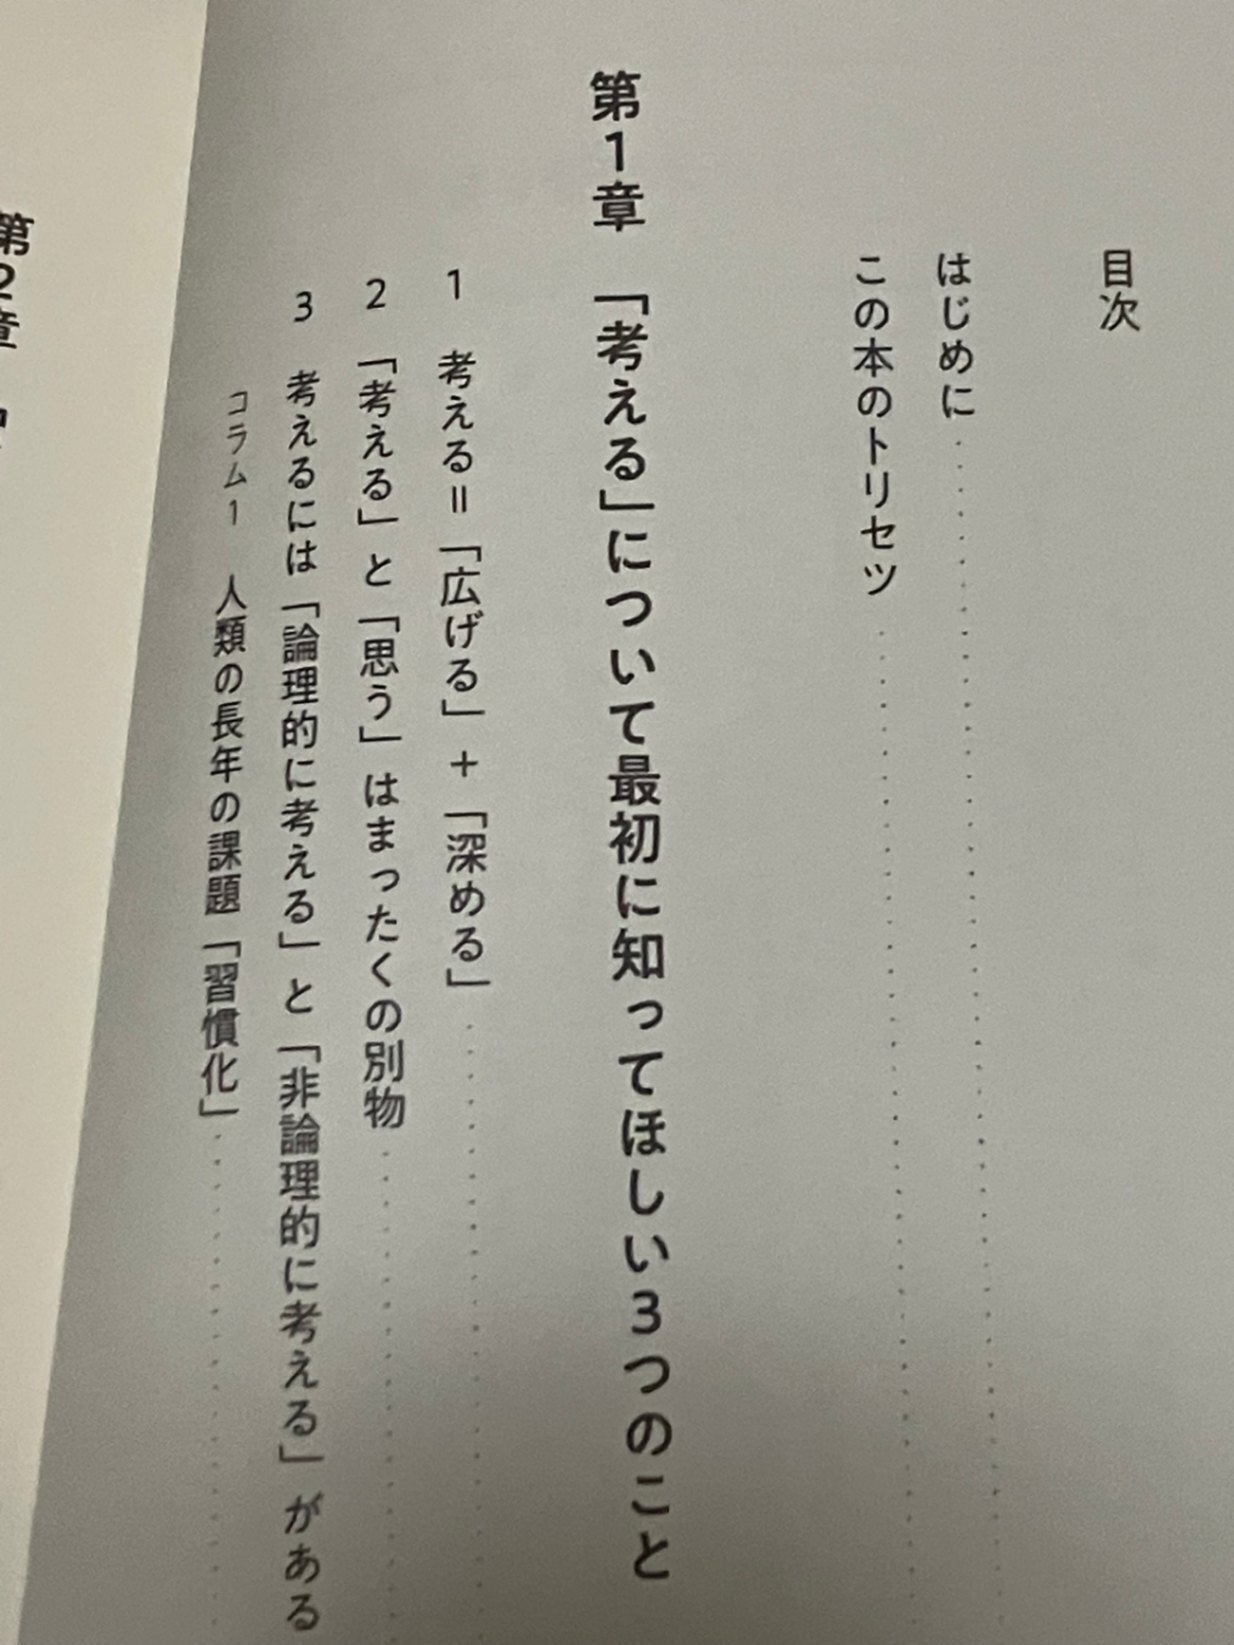 目次
はじめに
この本のトリセツ
第1章 「考える」について最初に知ってほしい3つのこと
1 考える＝「広げる」＋「深める」
2 「考える」と「思う」はまったくの別物
3 考えるには「論理的に考える」と「非論理的に考える」がある
コラム1 人類の長年の課題「習慣化」
第2章